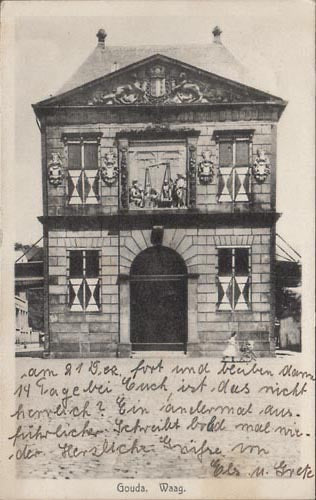 am 21 Dez. fort und bleiben dann
14 Tage bei Euch, ist das nicht
herrlich? Ein andermal aus-
führlicher. Schreibt bald mal wie-
der. Herzliche Grüße von
Els u.
Gouda. Waag.